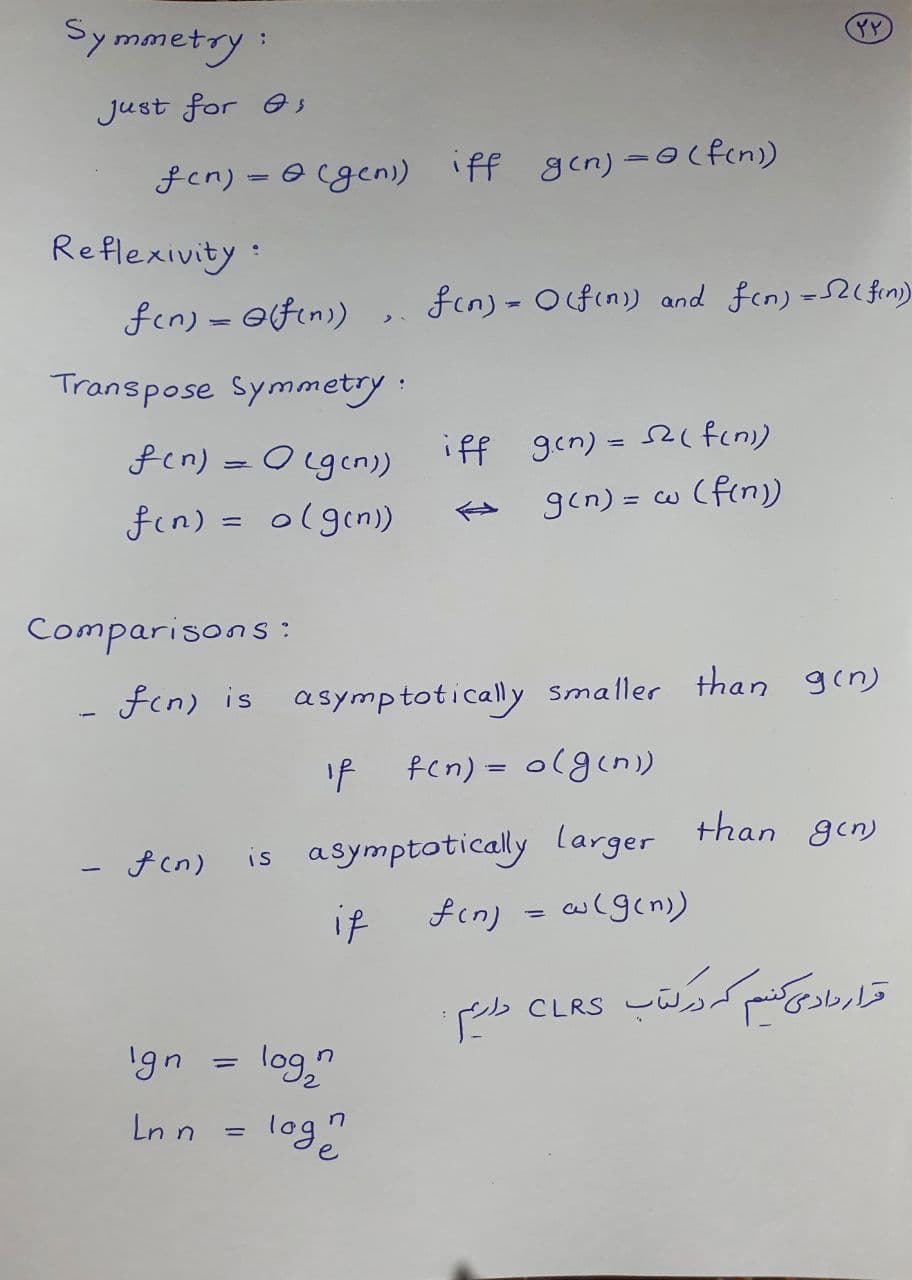 ۲۲
Symmetry :
just for θ,
f(n) = θ(g(n)) iff g(n) = θ(f(n))
Reflexivity :
f(n) = θ(f(n)) , f(n) = O(f(n)) and f(n) = Ω(f(n))
Transpose Symmetry :
f(n) = O(g(n)) iff g(n) = Ω(f(n))
f(n) = o(g(n)) ⇔ g(n) = ω(f(n))
Comparisons :
- f(n) is asymptotically smaller than g(n)
if f(n) = o(g(n))
- f(n) is asymptotically larger than g(n)
if f(n) = ω(g(n))
قرارداد می کنیم که در کتاب CLRS داریم :
lg n = log₂ⁿ
Ln n = logₑⁿ